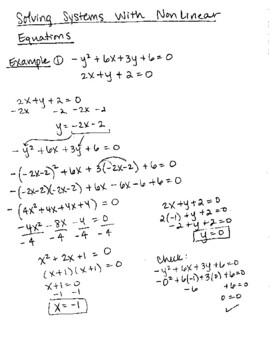 Solving Systems With Nonlinear
Equations
Example ① -y² + 6x + 3y + 6 = 0
2x + y + 2 = 0
2x + y + 2 = 0
-2x -2 -2x -2
y = -2x - 2
-y² + 6x + 3y + 6 = 0
-(-2x-2)² + 6x + 3(-2x-2) + 6 = 0
-(-2x-2)(-2x-2) + 6x - 6x - 6 + 6 = 0
-(4x² + 4x + 4x + 4) = 0
-4x² - 8x - 4 = 0
-4 -4 -4 -4
x² + 2x + 1 = 0
(x+1)(x+1) = 0
x + 1 = 0
-1 -1
x = -1
2x + y + 2 = 0
2(-1) + y + 2 = 0
-2 + y + 2 = 0
y = 0
Check:
-y² + 6x + 3y + 6 = 0
-0² + 6(-1) + 3(0) + 6 = 0
-6 + 6 = 0
0 = 0
✓